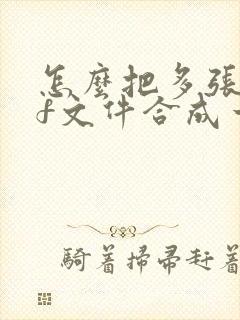 怎麼把多張
f文件合成
騎着掃帚赶着